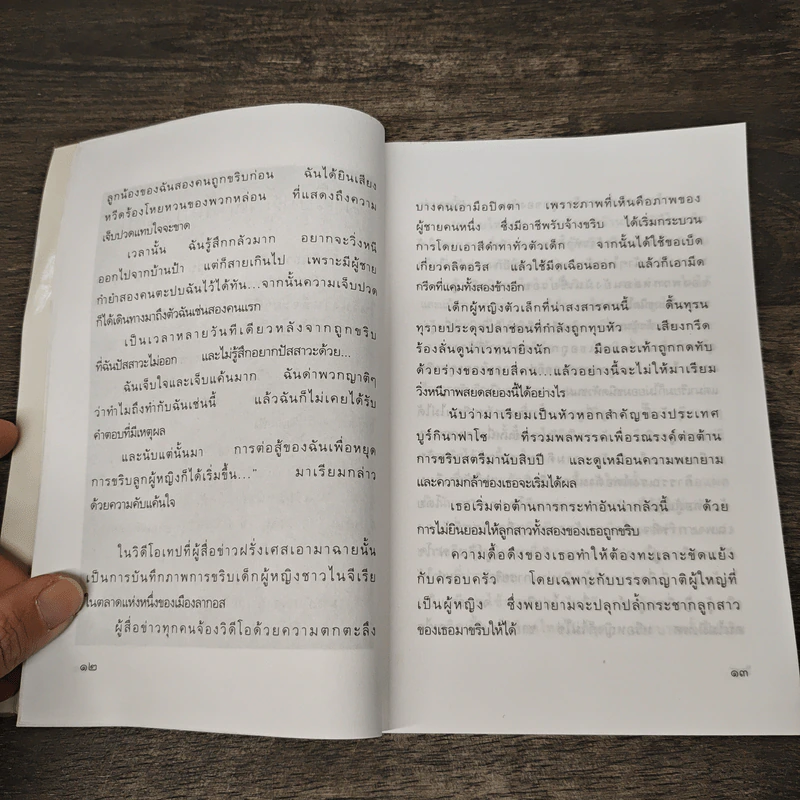 ลูกน้องของฉันสองคนถูกขริบก่อน ฉันได้ยินเสียง
หวีดร้องโหยหวนของพวกหล่อน ที่แสดงถึงความ
เจ็บปวดแทบใจจะขาด
เวลานั้น ฉันรู้สึกกลัวมาก อยากจะวิ่งหนี
ออกไปจากบ้านป้า แต่ก็สายเกินไป เพราะมีผู้ชาย
กำยำสองคนตะปบฉันไว้ได้ทัน...จากนั้นความเจ็บปวด
ก็ได้เดินทางมาถึงตัวฉันเช่นสองคนแรก
เป็นเวลาหลายวันทีเดียวหลังจากถูกขริบ
ที่ฉันปัสสาวะไม่ออก และไม่รู้สึกอยากปัสสาวะด้วย...
ฉันเจ็บใจและเจ็บแค้นมาก ฉันด่าพวกญาติๆ
ว่าทำไมถึงทำกับฉันเช่นนี้ แล้วฉันก็ไม่เคยได้รับ
คำตอบที่มีเหตุผล
และนับแต่นั้นมา การต่อสู้ของฉันเพื่อหยุด
การขริบลูกผู้หญิงก็ได้เริ่มขึ้น..." มาเรียมกล่าว
ด้วยความคับแค้นใจ
ในวิดีโอเทปที่ผู้สื่อข่าวฝรั่งเศสเอามาฉายนั้น
เป็นการบันทึกภาพการขริบเด็กผู้หญิงชาวไนจีเรีย
ในตลาดแห่งหนึ่งของเมืองลากอส
ผู้สื่อข่าวทุกคนจ้องวิดีโอด้วยความตกตะลึง
๑๒
บางคนเอามือปิดตา เพราะภาพที่เห็นคือภาพของ
ผู้ชายคนหนึ่ง ซึ่งมีอาชีพรับจ้างขริบ ได้เริ่มกระบวน
การโดยเอาสีดำทาทั่วตัวเด็ก จากนั้นได้ใช้ขอเบ็ด
เกี่ยวคลิตอริส แล้วใช้มีดเฉือนออก แล้วก็เอามีด
กรีดที่แคมทั้งสองข้างอีก
เด็กผู้หญิงตัวเล็กที่น่าสงสารคนนี้ ดิ้นทุรน
ทุรายประดุจปลาช่อนที่กำลังถูกทุบหัว เสียงกรีด
ร้องลั่นดูน่าเวทนายิ่งนัก มือและเท้าถูกกดทับ
ด้วยร่างของชายสี่คน...แล้วอย่างนี้จะไม่ให้มาเรียม
วิ่งหนีภาพสยดสยองนี้ได้อย่างไร
นับว่ามาเรียมเป็นหัวหอกสำคัญของประเทศ
บูร์กินาฟาโซ ที่รวมพลพรรคเพื่อรณรงค์ต่อต้าน
การขริบสตรีมานับสิบปี และดูเหมือนความพยายาม
และความกล้าของเธอจะเริ่มได้ผล
เธอเริ่มต่อต้านการกระทำอันน่ากลัวนี้ ด้วย
การไม่ยินยอมให้ลูกสาวทั้งสองของเธอถูกขริบ
ความดื้อดึงของเธอทำให้ต้องทะเลาะขัดแย้ง
กับครอบครัว โดยเฉพาะกับบรรดาญาติผู้ใหญ่ที่
เป็นผู้หญิง ซึ่งพยายามจะปลุกปล้ำกระชากลูกสาว
ของเธอมาขริบให้ได้
๑๓